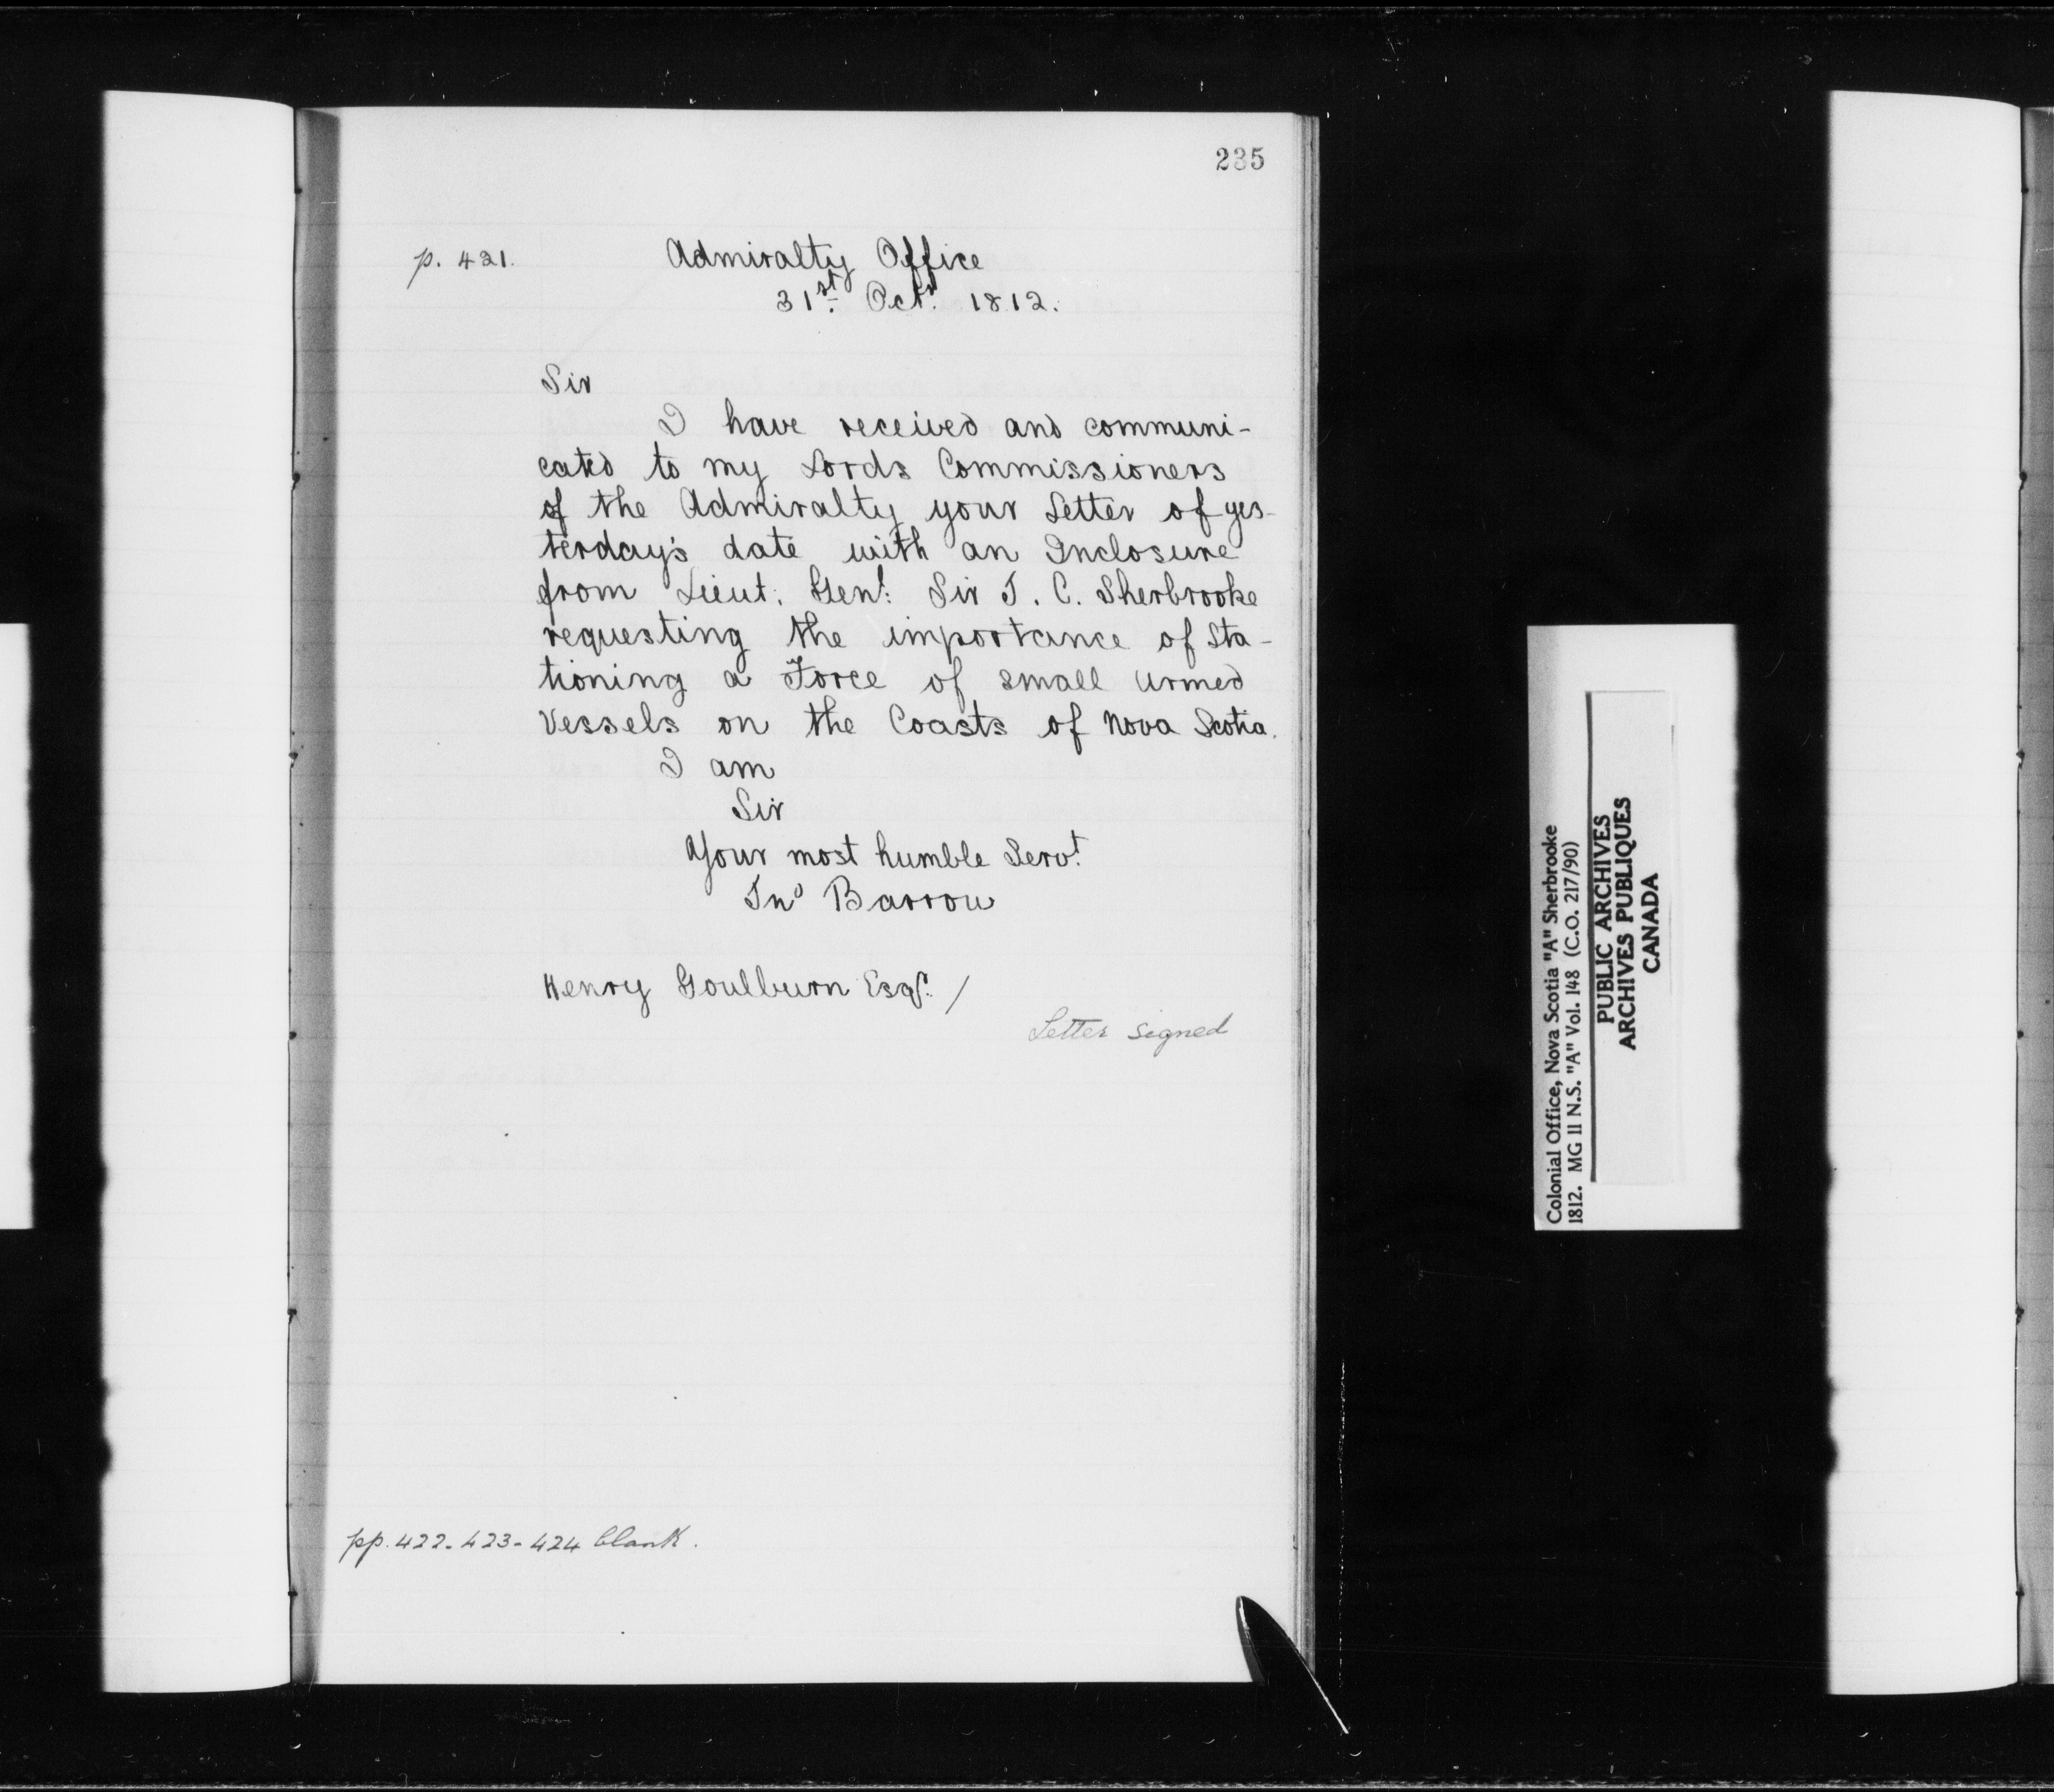 235
p. 421.
Admiralty Office
31st. Octr. 1812.
Sir
I have received and communi-
cated to my Lords Commissioners
of the Admiralty your Letter of yes-
terday's date with an Inclosure
from Lieut. Genl: Sir J. C. Sherbrooke
requesting the importance of sta-
tioning a Force of small armed
Vessels on the Coasts of Nova Scotia.
I am
Sir
Your most humble Servt.
Jno Barrow
Henry Goulburn Esqr. /
Letter signed
pp. 422-423-424 blank.
Colonial Office, Nova Scotia "A" Sherbrooke
1812. MG 11 N.S. "A" Vol. 148 (C.O. 217/90)
PUBLIC ARCHIVES
ARCHIVES PUBLIQUES
CANADA